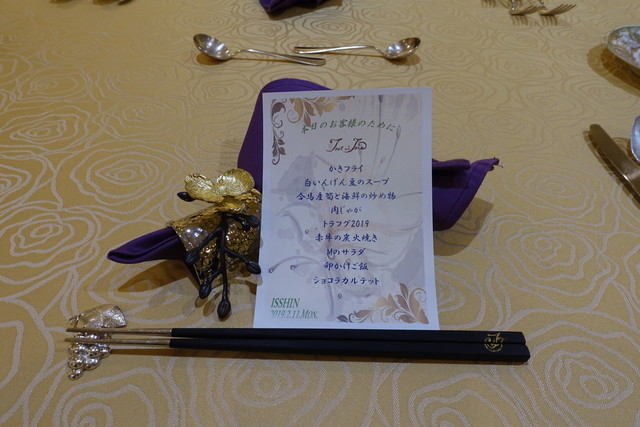 本日のお客様のために
かきフライ
白いんげん豆のスープ
合馬産筍と海鮮の炒め物
肉じゃが
トラフグ2019
赤牛の炭火焼き
Mのサラダ
卵かけご飯
ショコラカルテット
ISSHIN
2019.2.11.MON.